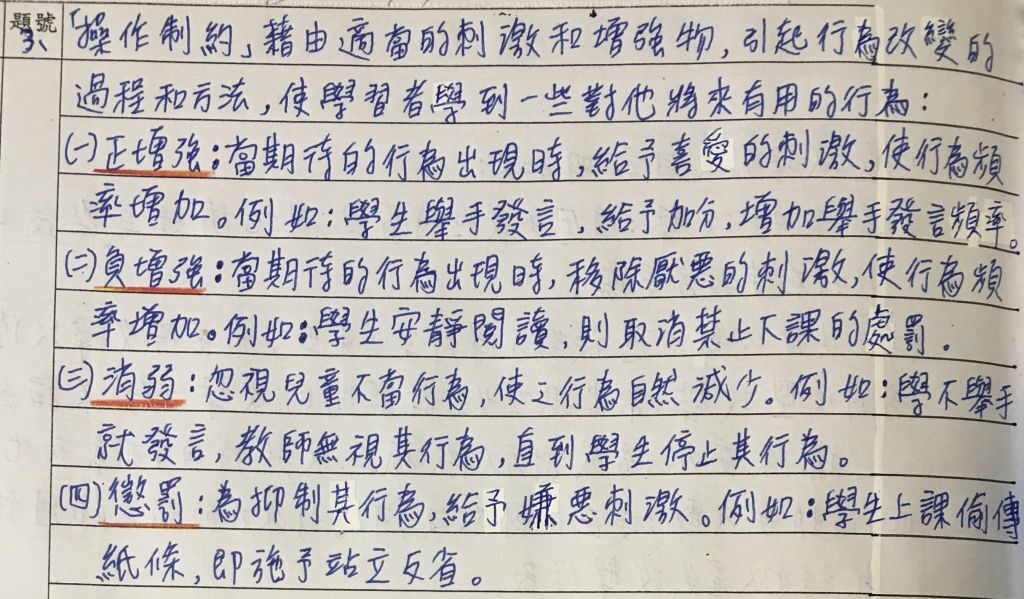 題號
3、「操作制約」藉由適當的刺激和增強物，引起行為改變的
過程和方法，使學習者學到一些對他將來有用的行為：
(一)正增強：當期待的行為出現時，給予喜愛的刺激，使行為頻
率增加。例如：學生舉手發言，給予加分，增加舉手發言頻率。
(二)負增強：當期待的行為出現時，移除厭惡的刺激，使行為頻
率增加。例如：學生安靜閱讀，則取消禁止下課的處罰。
(三)消弱：忽視兒童不當行為，使之行為自然減少。例如：學不舉手
就發言，教師無視其行為，直到學生停止其行為。
(四)懲罰：為抑制其行為，給予嫌惡刺激。例如：學生上課偷傳
紙條，即施予站立反省。